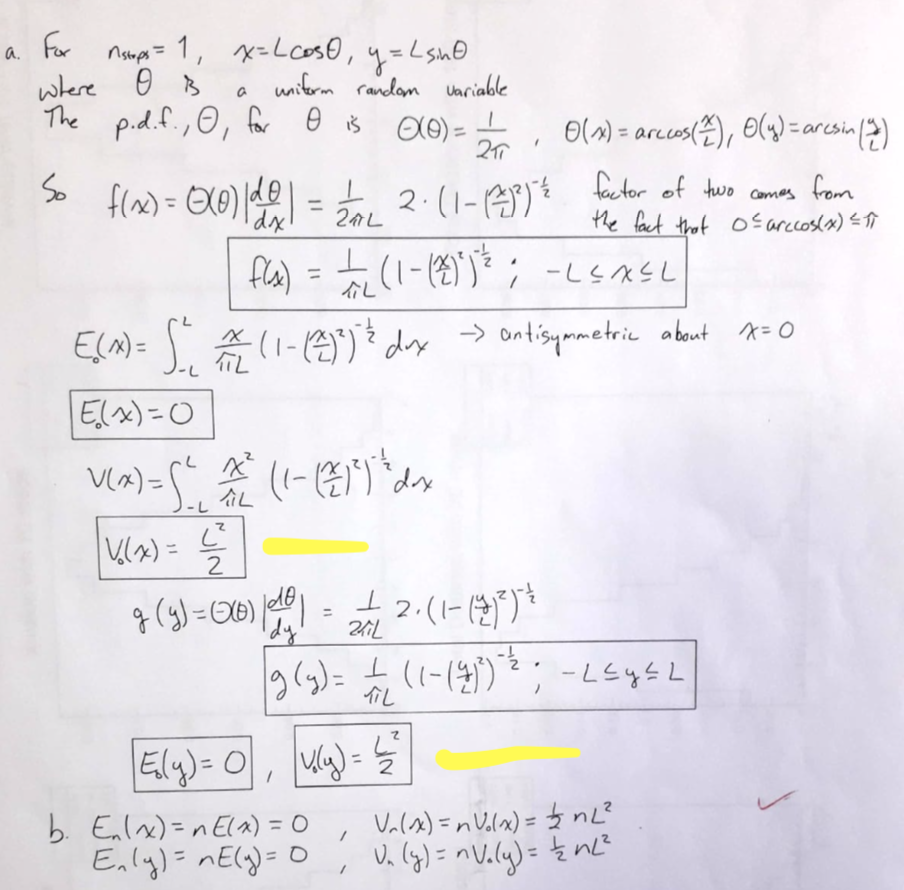 a. For n_steps = 1, x = L cosθ, y = L sinθ
where θ is a uniform random variable
The p.d.f., Θ, for θ is Θ(θ) = 1/2π, θ(x) = arccos(x/L), θ(y) = arcsin(y/L)
So f(x) = Θ(θ)|dθ/dx| = 1/2πL 2·(1-(x/L)²)^-1/2 factor of two comes from
the fact that 0 ≤ arccos(x) ≤ π
f(x) = 1/πL (1-(x/L)²)^-1/2 ; -L ≤ x ≤ L
E₀(x) = ∫_-L^L x/πL (1-(x/L)²)^-1/2 dx → antisymmetric about x=0
E₀(x) = 0
V(x) = ∫_-L^L x²/πL (1-(x/L)²)^-1/2 dx
V₀(x) = L²/2
g(y) = Θ(θ)|dθ/dy| = 1/2πL 2·(1-(y/L)²)^-1/2
g(y) = 1/πL (1-(y/L)²)^-1/2 ; -L ≤ y ≤ L
E₀(y) = 0 , V₀(y) = L²/2
b. Eₙ(x) = nE(x) = 0 , Vₙ(x) = nV₀(x) = 1/2 nL²
Eₙ(y) = nE(y) = 0 , Vₙ(y) = nV₀(y) = 1/2 nL²